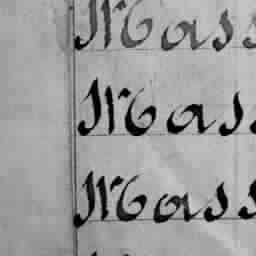 Mass
Mass
Mass